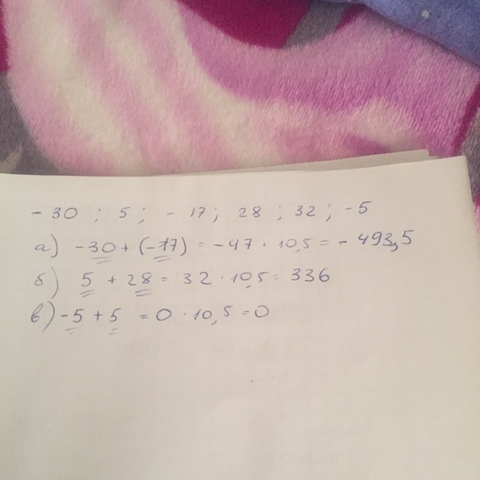 - 30 ; 5 ; - 17 ; 28 ; 32 ; -5
а) -30 + (-17) = -47 · 10,5 = - 493,5
б) 5 + 28 = 32 · 10,5 = 336
в) -5 + 5 = 0 · 10,5 = 0